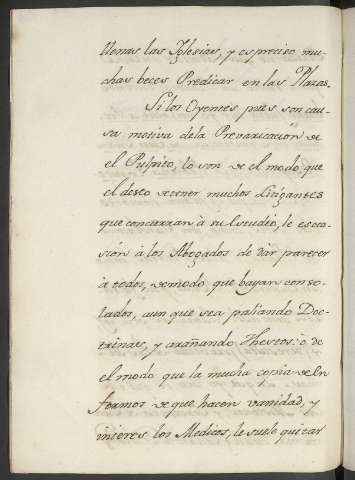 llenas las Iglesias, y es preciso mu-
chas beces Predicar en las Plazas.
Si los Oyentes pues son cau-
sa motiva dela Prevaricacion de
el Pulpito, lo son de el modo que
el deseo de tener muchos Litigantes
que concurran à su Estudio, le es oca-
sion à los Abogados de dar parecer
à todos, de modo que bayan conso-
lados, aun que sea paliando Doc-
trinas, y arañando Thestos: ò de
el modo que la mucha copia de En
fermos de que hacen vanidad, y
interes los Medicos, le suele quitar